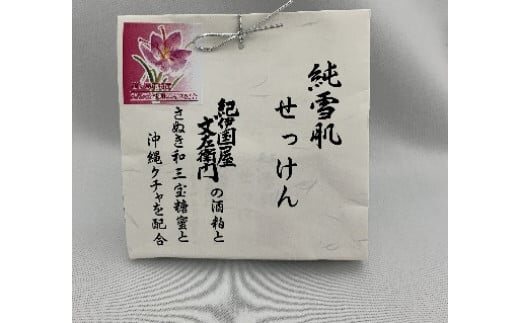 純雪肌
せっけん
紀伊国屋
文左衛門の酒粕と
さぬき和三宝糖蜜と
沖縄クチャを配合